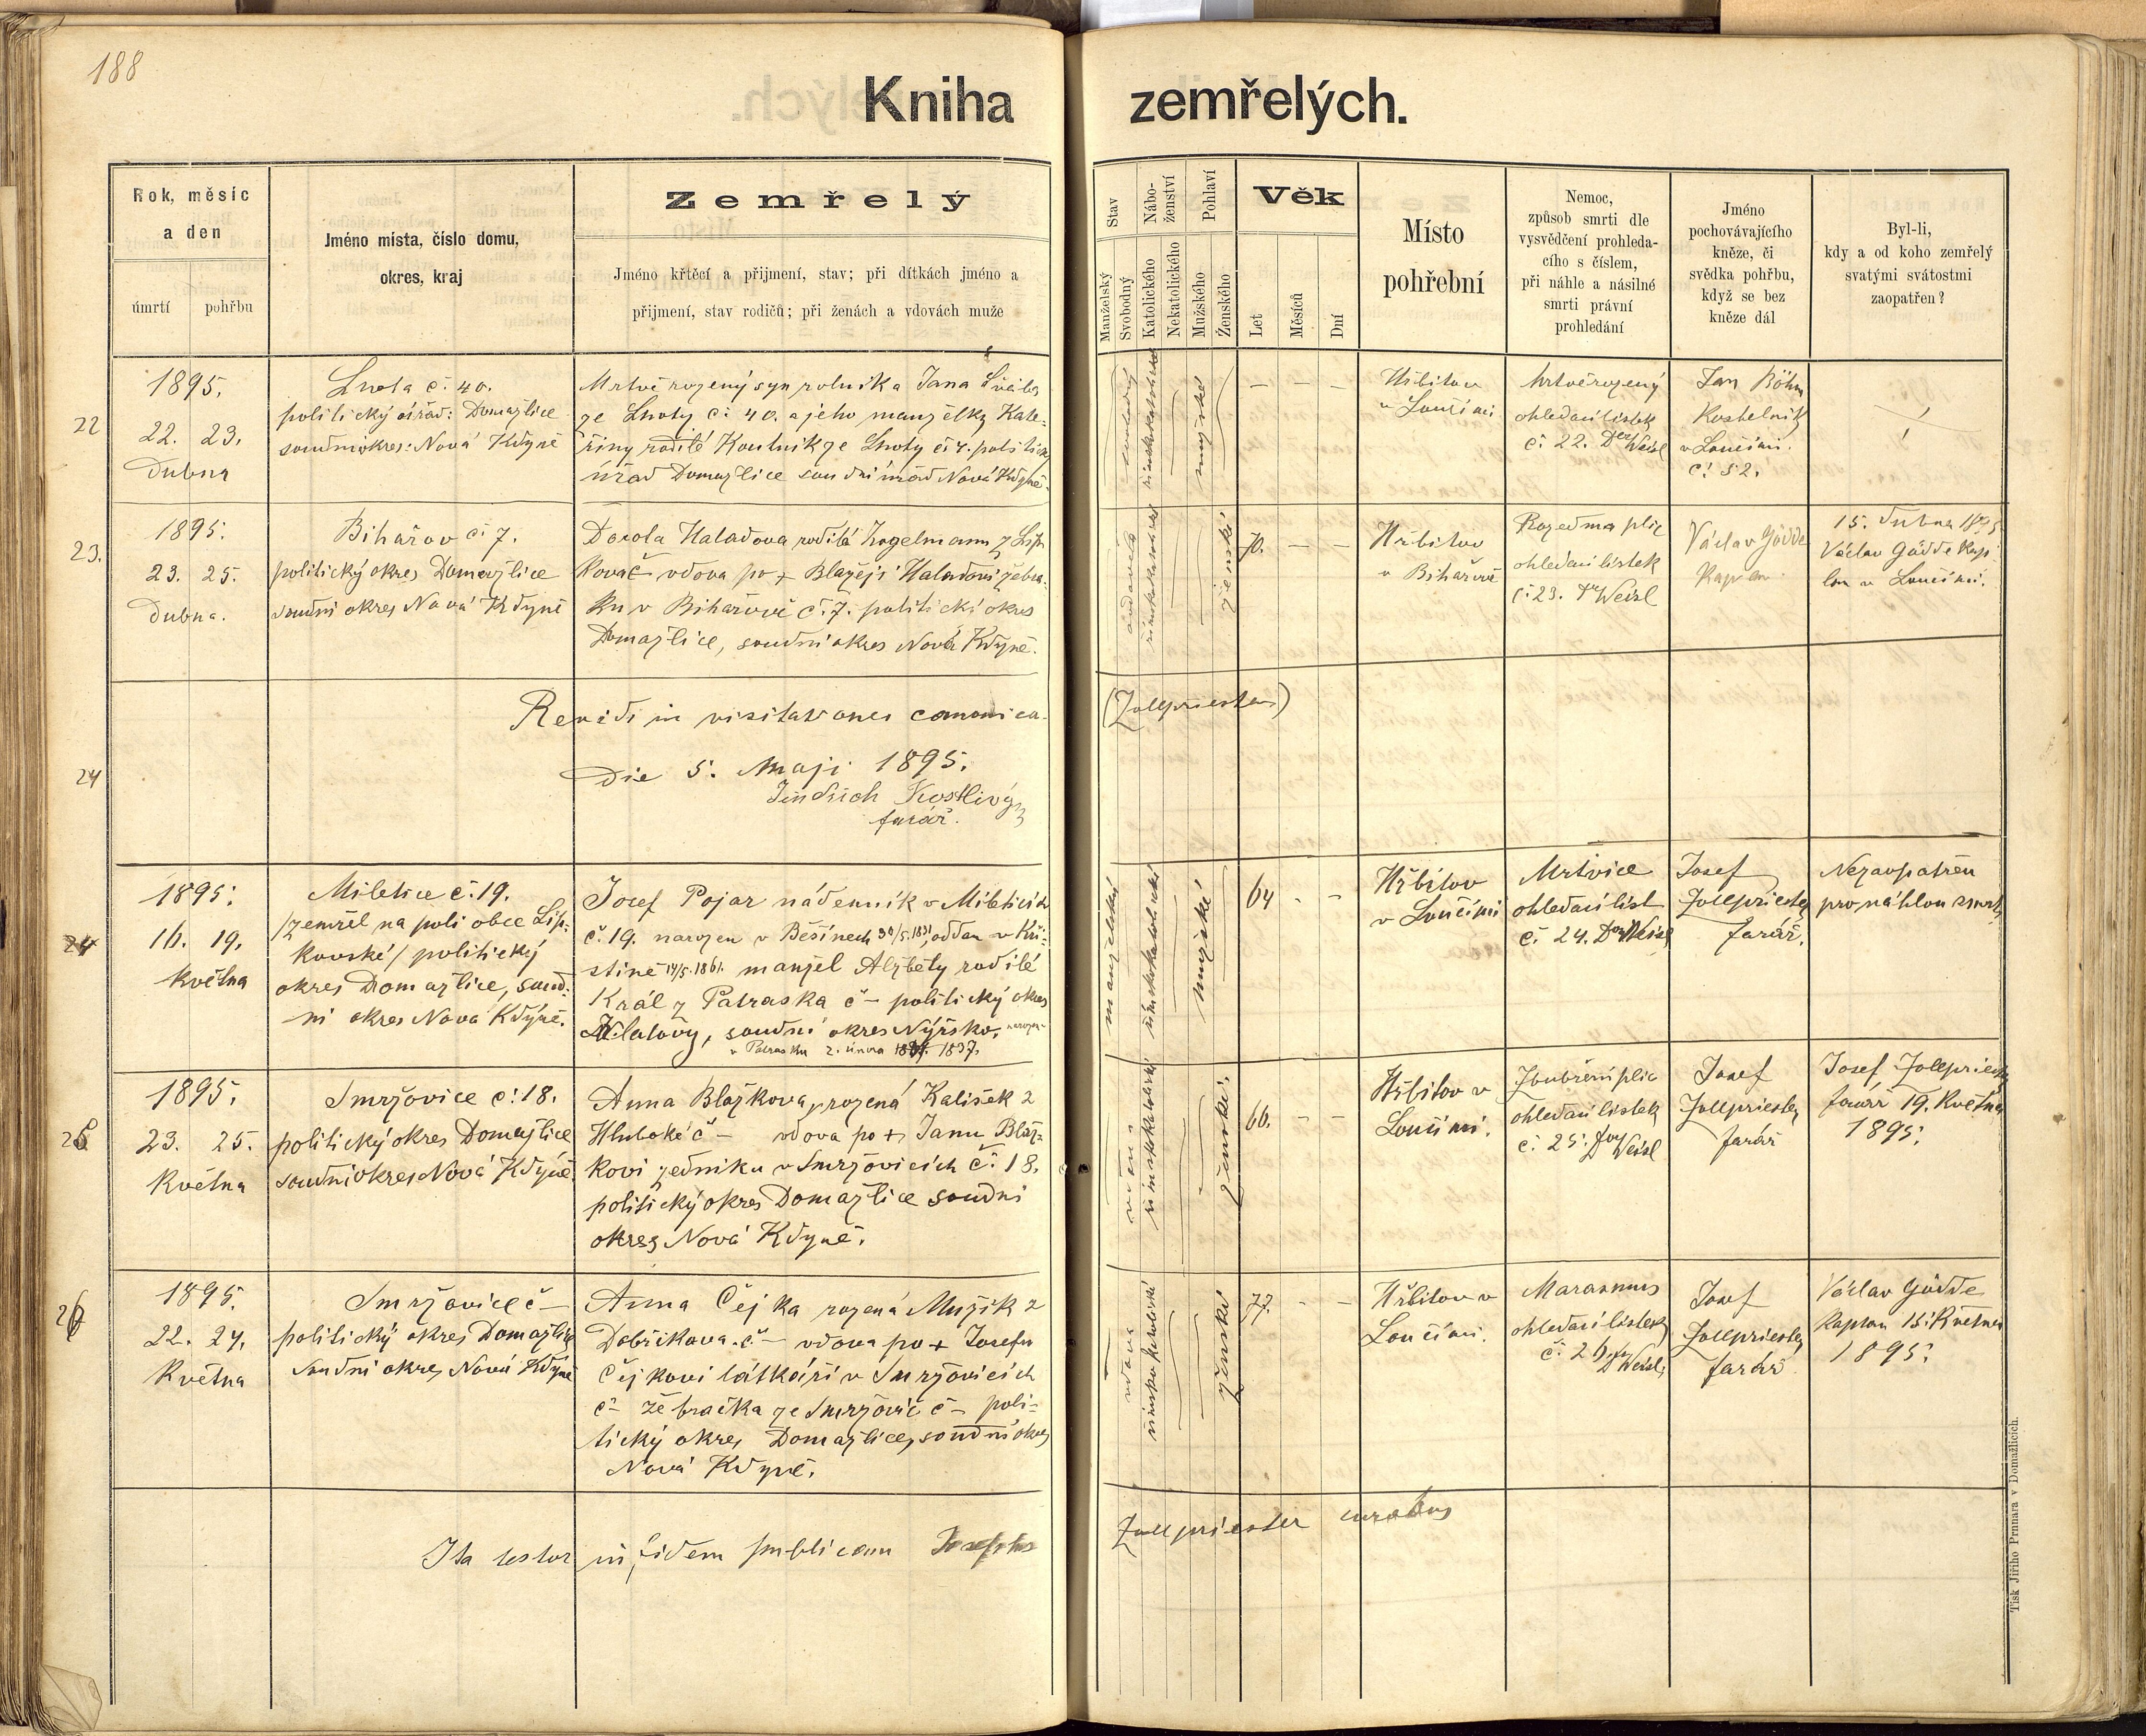 188
Kniha zemřelých.
Rok, měsíc
a den
úmrtí
pohřbu
Jméno místa, číslo domu,
okres, kraj
Zemřelý
Jméno křtěcí a přijmení, stav; při dítkách jméno a
přijmení, stav rodičů; při ženách a vdovách muže
Stav
Manželský
Svobodný
Nábo-
ženství
Katolického
Nekatolického
Pohlaví
Mužského
Ženského
Věk
Let
Měsíců
Dní
Místo
pohřební
Nemoc,
způsob smrti dle
vysvědčení prohleda-
cího s číslem,
při náhle a násilné
smrti právní
prohledání
Jméno
pochovávajícího
kněze, či
svědka pohřbu,
když se bez
kněze dál
Byl-li,
kdy a od koho zemřelý
svatými svátostmi
zaopatřen?
22
1895.
22. 23.
Dubna
Lhota č. 40.
politický úřad: Domažlice
soudní okres: Nová Kdyně
Mrtvě rozený syn rolníka Jana
ze Lhoty č. 40. a jeho manželky Kate-
řiny rodilé ze Lhoty č. 4. politick.
úřad Domažlice soudní úřad Nová Kdyně.
římskokatolické
mužské
– – –
Hřbitov
v Loučimi
Mrtvěrozený
ohledací lístek
č. 22. Der Weisl
Jan Böhm
Kostelník
v Loučimi.
č. 52.
23.
1895.
23. 25.
Dubna.
Bihařov č. 7.
politický okres Domažlice
soudní okres Nová Kdyně
Dorota Haladova rodilá z Lip-
kovač vdova po + Blažeji Haladovi žebrá-
ku v Bihařově č. 7. politický okres
Domažlice, soudní okres Nová Kdyně.
ovdovělá
římskokatolické
ženské
70. – –
Hřbitov
v Bihařově
Rozedma plic
ohledací lístek
č. 23. Dr Weisl
Václav Gödde
Kaplan
15. Dubna 1895
Václav Gödde kap-
lan v Loučimi.
24
Revidi in visitationes canonica.
(Zollpriester)
Die 5. Maji 1895.
Jindřich Kostlivý
farář.
24
1895.
16. 19.
Května
Miletice č. 19.
/zemřel na poli obce Lip-
kovské/ politický
okres Domažlice, soud-
ní okres Nová Kdyně.
Josef Pojar nádenník v Mileticích
č. 19. narozen v Běšinech 30/5.1831, oddán v Kři-
stíně 14/5.1861. manžel Alžběty rodilé
Král z Patraska č – politický okres
Klatovy, soudní okres Nýrsko, narozen
v Patrasku 2. února 1837.
manželský
římskokatolické
mužské
64 - -
Hřbitov
v Loučimi
Mrtvice
ohledací líst
č. 24. Dr Weisl
Josef
Zollpriester
farář.
Nezaopatřen
pro náhlou smrt
25
1895.
23. 25.
Května
Smržovice č. 18.
politický okres Domažlice
soudní okres Nová Kdyně.
Anna Blažkova, rozená Kališek z
Hluboké č – vdova po + Janu Blaž-
kovi zedníku v Smržovicích č. 18.
politický okres Domažlice soudní
okres Nová Kdyně.
vdova
římskokatolické
ženské.
66. - -
Hřbitov v
Loučimi.
ohledací lístek
č. 25. Dr Weisl
Josef
Zollpriester
farář
Josef Zollpriester
farář 19. Května
1895.
26
1895.
22. 24.
Května
Smržovice č –
politický okres Domažlice
soudní okres Nová Kdyně
Anna Čejka rozená Mužik z
Dobřikova č – vdova po + Josefu
Čejkovi látkáři v Smržovicích
č – žebračka ze Smržovic č – poli-
tický okres Domažlice, soudní okres
Nová Kdyně.
vdova
římskokatolické
ženské
77. - -
Hřbitov v
Loučimi.
Marasmus
ohledací lístek
č. 26. Dr Weisl
Josef
Zollpriester
farář
Václav Gödde
Kaplan 15. Května
1895.
Ita testor in fidem publicam Josephus
Zollpriester curatus
Tisk Jiřího Prunara v Domažlicích.